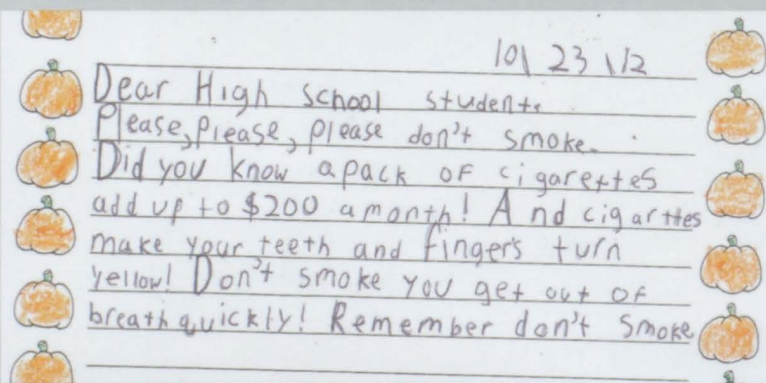 10\ 23 \12
Dear High school student.
Please, Please, please don't smoke.
Did you know a pack of cigarettes
add up to $200 a month! And cigarttes
make your teeth and fingers turn
yellow! Don't smoke you get out of
breath quickly! Remember don't smoke